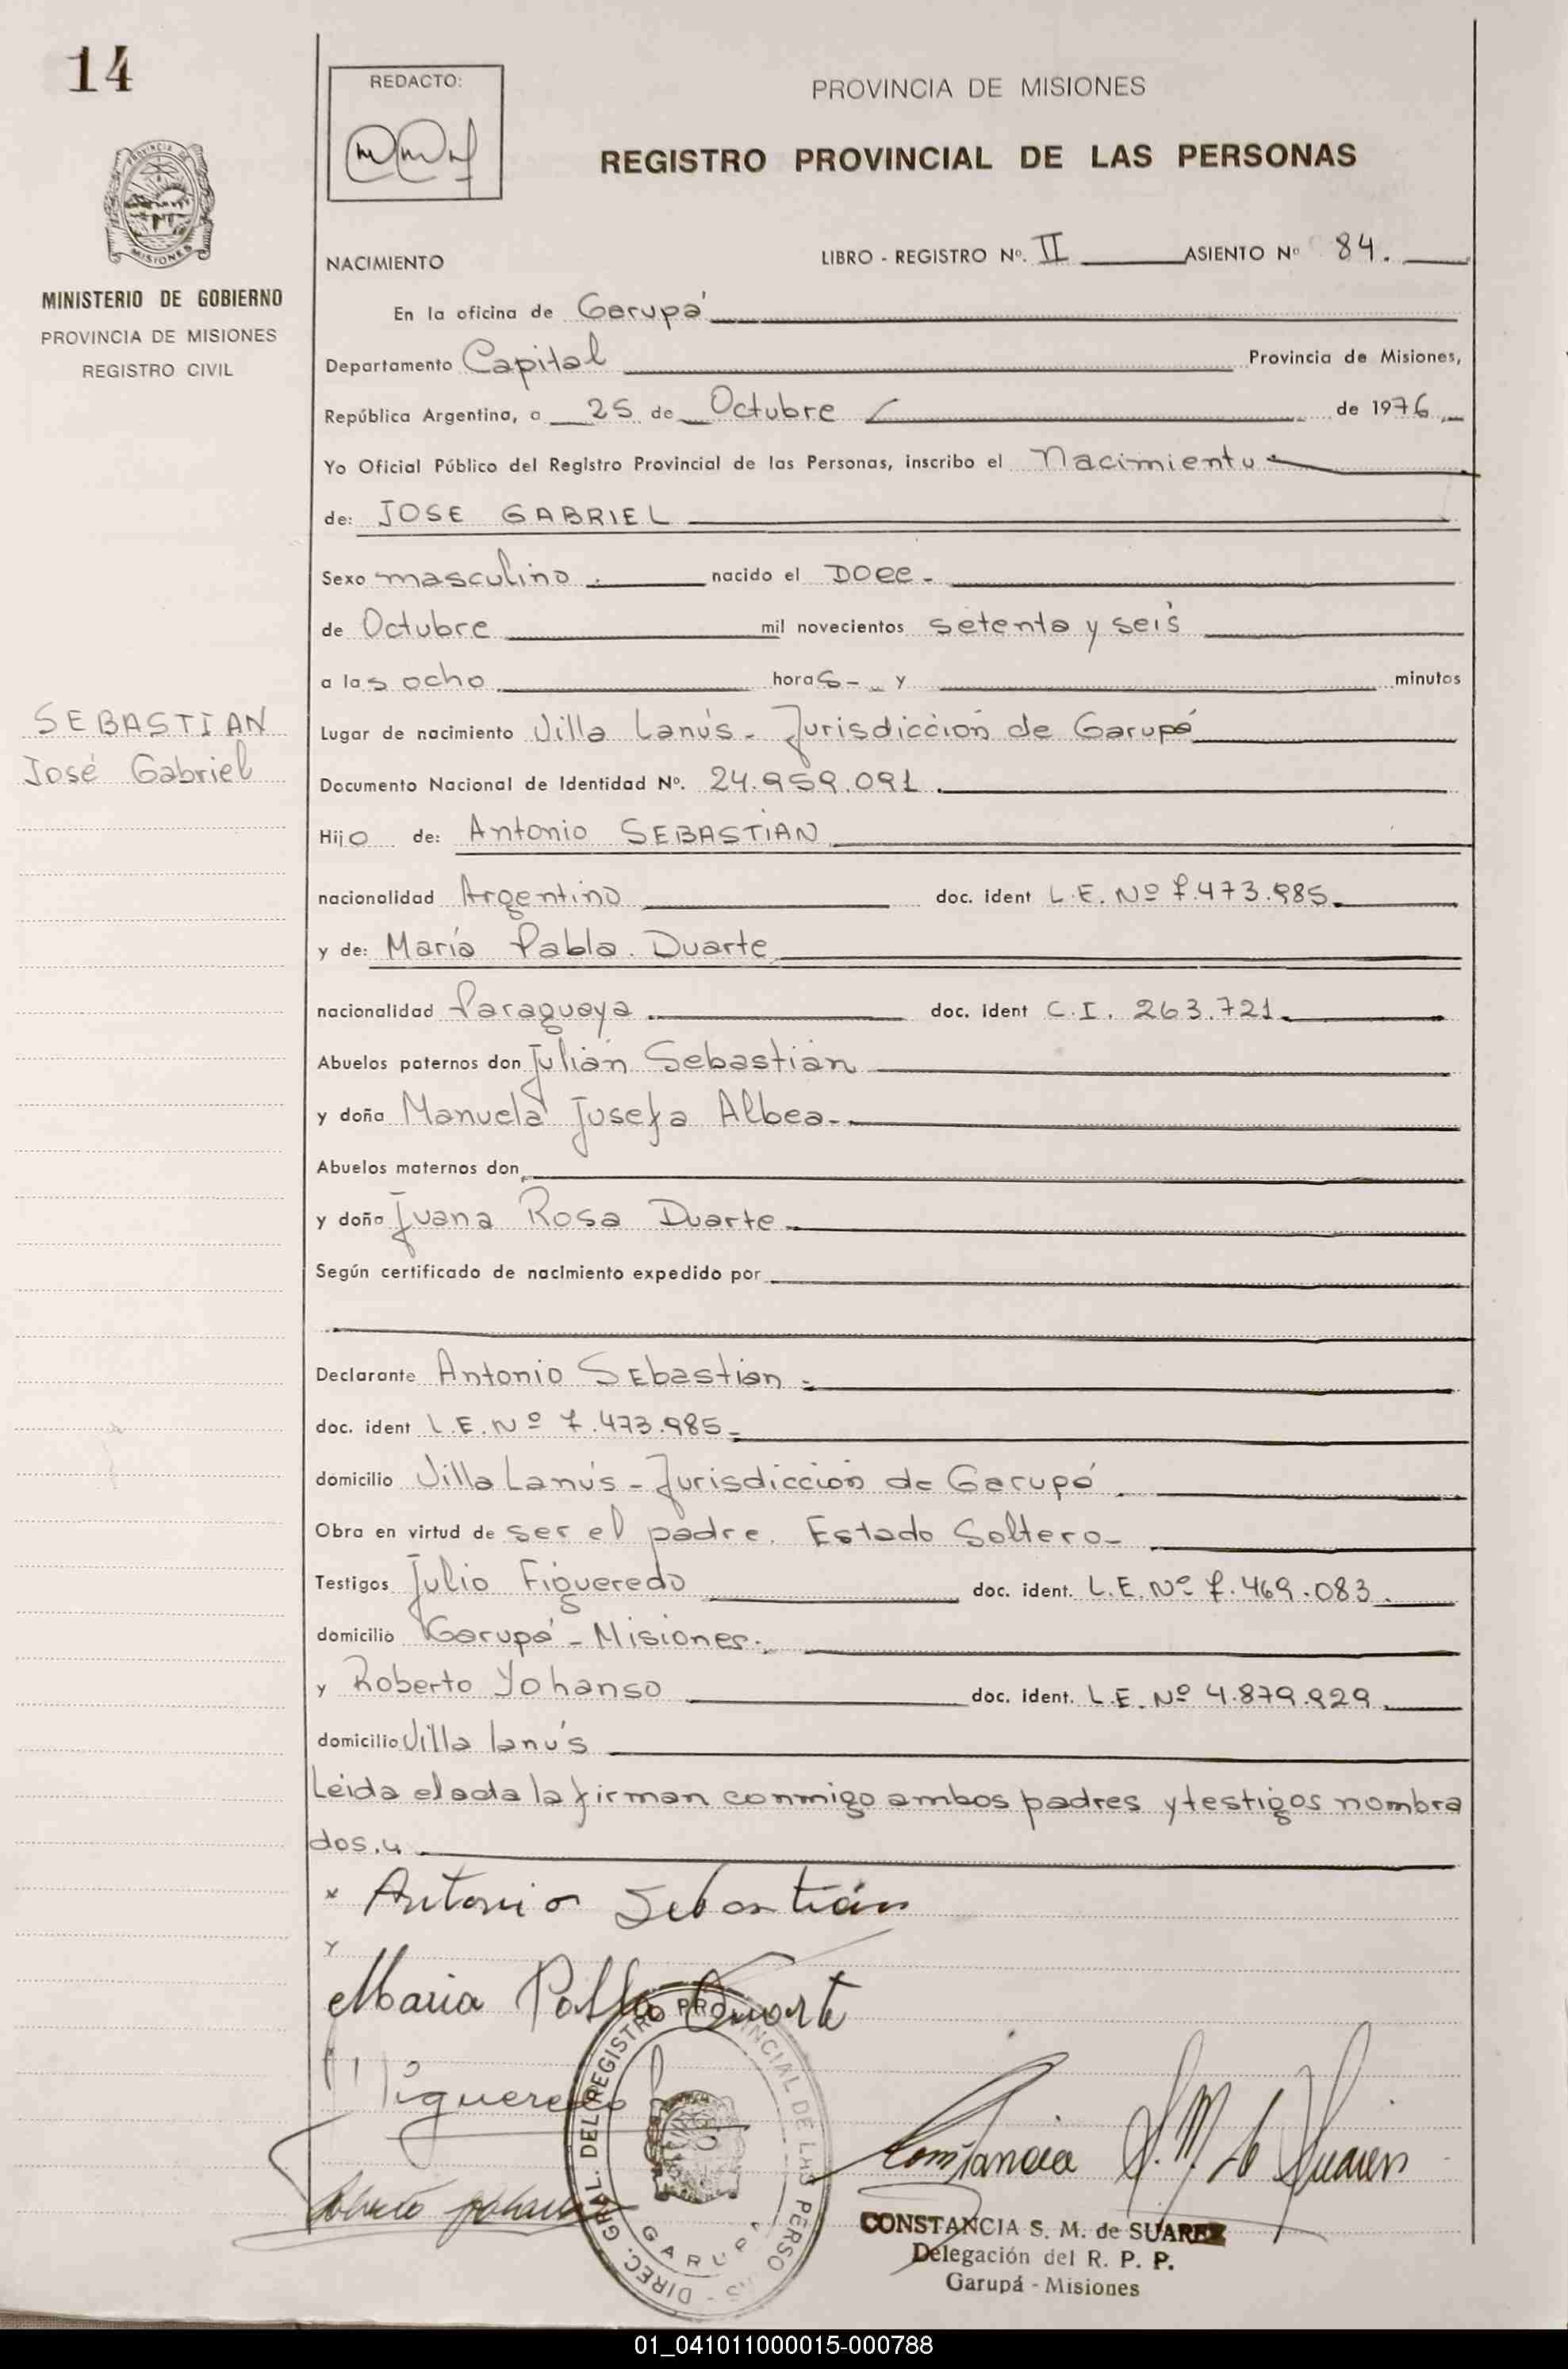 14
REDACTO:
PROVINCIA DE MISIONES
REGISTRO PROVINCIAL DE LAS PERSONAS
PROVINCIA DE
MISIONES
MINISTERIO DE GOBIERNO
PROVINCIA DE MISIONES
REGISTRO CIVIL
NACIMIENTO LIBRO - REGISTRO Nº. II ASIENTO Nº 84.
En la oficina de Garupá
Departamento Capital Provincia de Misiones,
República Argentina, a 25 de Octubre de 1976
Yo Oficial Público del Registro Provincial de las Personas, inscribo el Nacimiento
de: JOSE GABRIEL
Sexo masculino. nacido el Doce -
de Octubre mil novecientos setenta y seis
a las ocho horas - y minutos
SEBASTIAN
José Gabriel
Lugar de nacimiento Villa Lanús - Jurisdicción de Garupá
Documento Nacional de Identidad Nº. 24.959.091.
Hijo de: Antonio SEBASTIAN
nacionalidad Argentino doc. ident L.E. Nº 7.473.985.
y de: María Pabla. Duarte
nacionalidad Paraguaya. doc. ident C.I. 263.721.
Abuelos paternos don Julián Sebastián
y doña Manuela Josefa Albea.-
Abuelos maternos don
y doña Juana Rosa Duarte.
Según certificado de nacimiento expedido por
Declarante Antonio SEbastián.
doc. ident L.E. Nº 7.473.985.
domicilio Villa Lanús - Jurisdicción de Garupá.
Obra en virtud de ser el padre. Estado Soltero -
Testigos Julio Figueredo doc. ident. L.E. Nº 7.469.083.
domicilio Garupá - Misiones.
y Roberto Yohanso doc. ident. L.E. Nº 4.879.929.
domicilio Villa Lanús
Leida el acta la firman conmigo ambos padres y testigos nombra
dos.
x Antonio Sebastián
Maria Pabla Duarte
Figueredo
Constancia S. M. de Suarez
DIREC. GRAL. DEL REGISTRO PROVINCIAL DE LAS PERSONAS
GARUPA
CONSTANCIA S. M. de SUAREZ
Delegación del R. P. P.
Garupá - Misiones
01_041011000015-000788